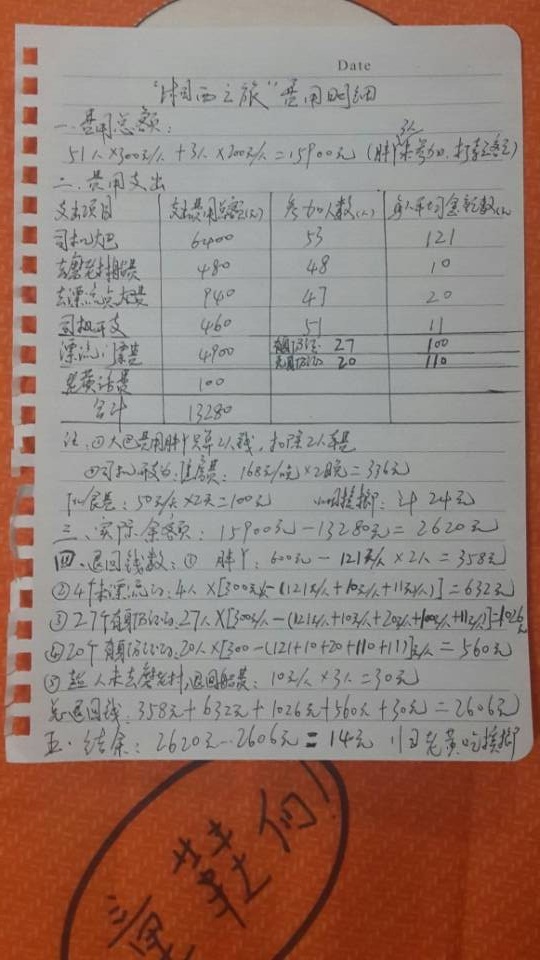 Date
"湘西之旅"费用明细
一、费用总额:
3人
51人×300元/人 + 3人×200元/人 = 15900元 (胖丫未参加,
二、费用支出
支出项目 支出费用总额(元) 参加人数(人) 每人平均金额数(元)
司机大巴 6400 53 121
去 船费 480 48 10
去漂流点 费 940 47 20
司机开支 460 51 11
漂流门票费 4900 27 100
20 110
老黄话费 100
合计 13280
注:①大巴费用胖丫只算2人钱,扣除2人车费
②司机开支的:住房费:168元/晚×2晚=336元
伙食费:50元/天×2天=100元 小田 24元
三、实际余额:15900元-13280元=2620元
四、退回钱数:① 胖丫:600元-121元/人×2人=358元
②4个未漂流的:4人×[300元/人-(121元/人+10元/人+11元/人)]=632元
③27个有 的:27人×[300元/人-(121元/人+10元/人+20元/人+100元/人+11元/人)]=1026元
④20个 的:20人×[300-(121+10+20+110+11)]元/人=560元
⑤ 人未去 村,退回船费:10元/人×3人=30元
总退回钱:358元+632元+1026元+560元+30元=2606元
五、结余:2620元-2606元=14元 老黄吃
们!